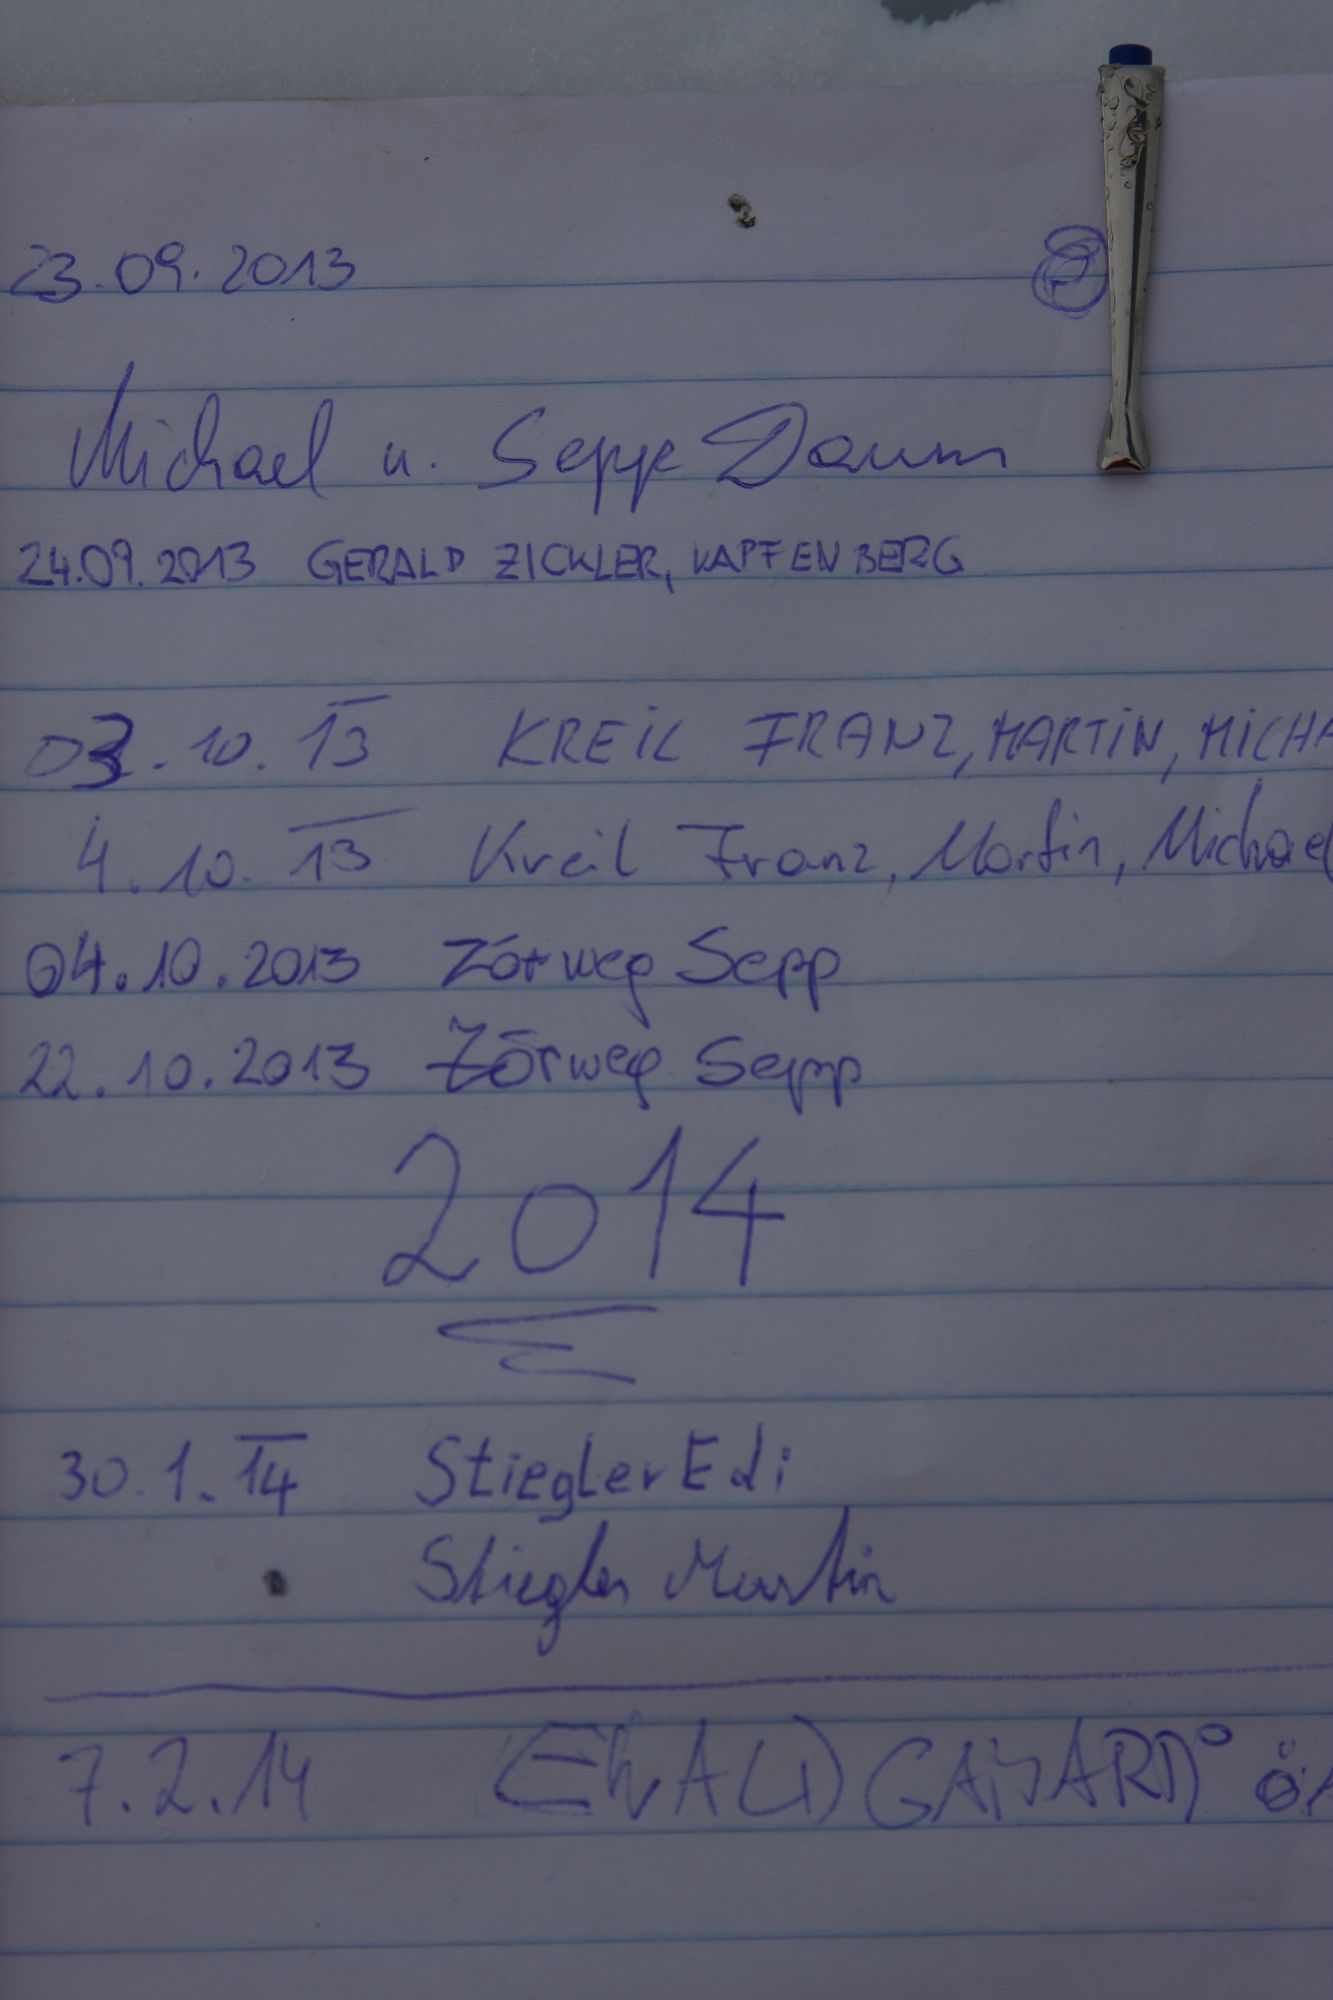 23.09.2013
Michael u. Sepp Daum
24.09.2013 GERALD ZICKLER, KAPFENBERG
03.10.13 KREIL FRANZ, MARTIN, MICHA
4.10.13 Kreil Franz, Martin, Michael
04.10.2013 Zörweg Sepp
22.10.2013 Zörweg Sepp
2014
30.1.14 Stiegler Edi
Stiegler Martin
7.2.14 EWALD